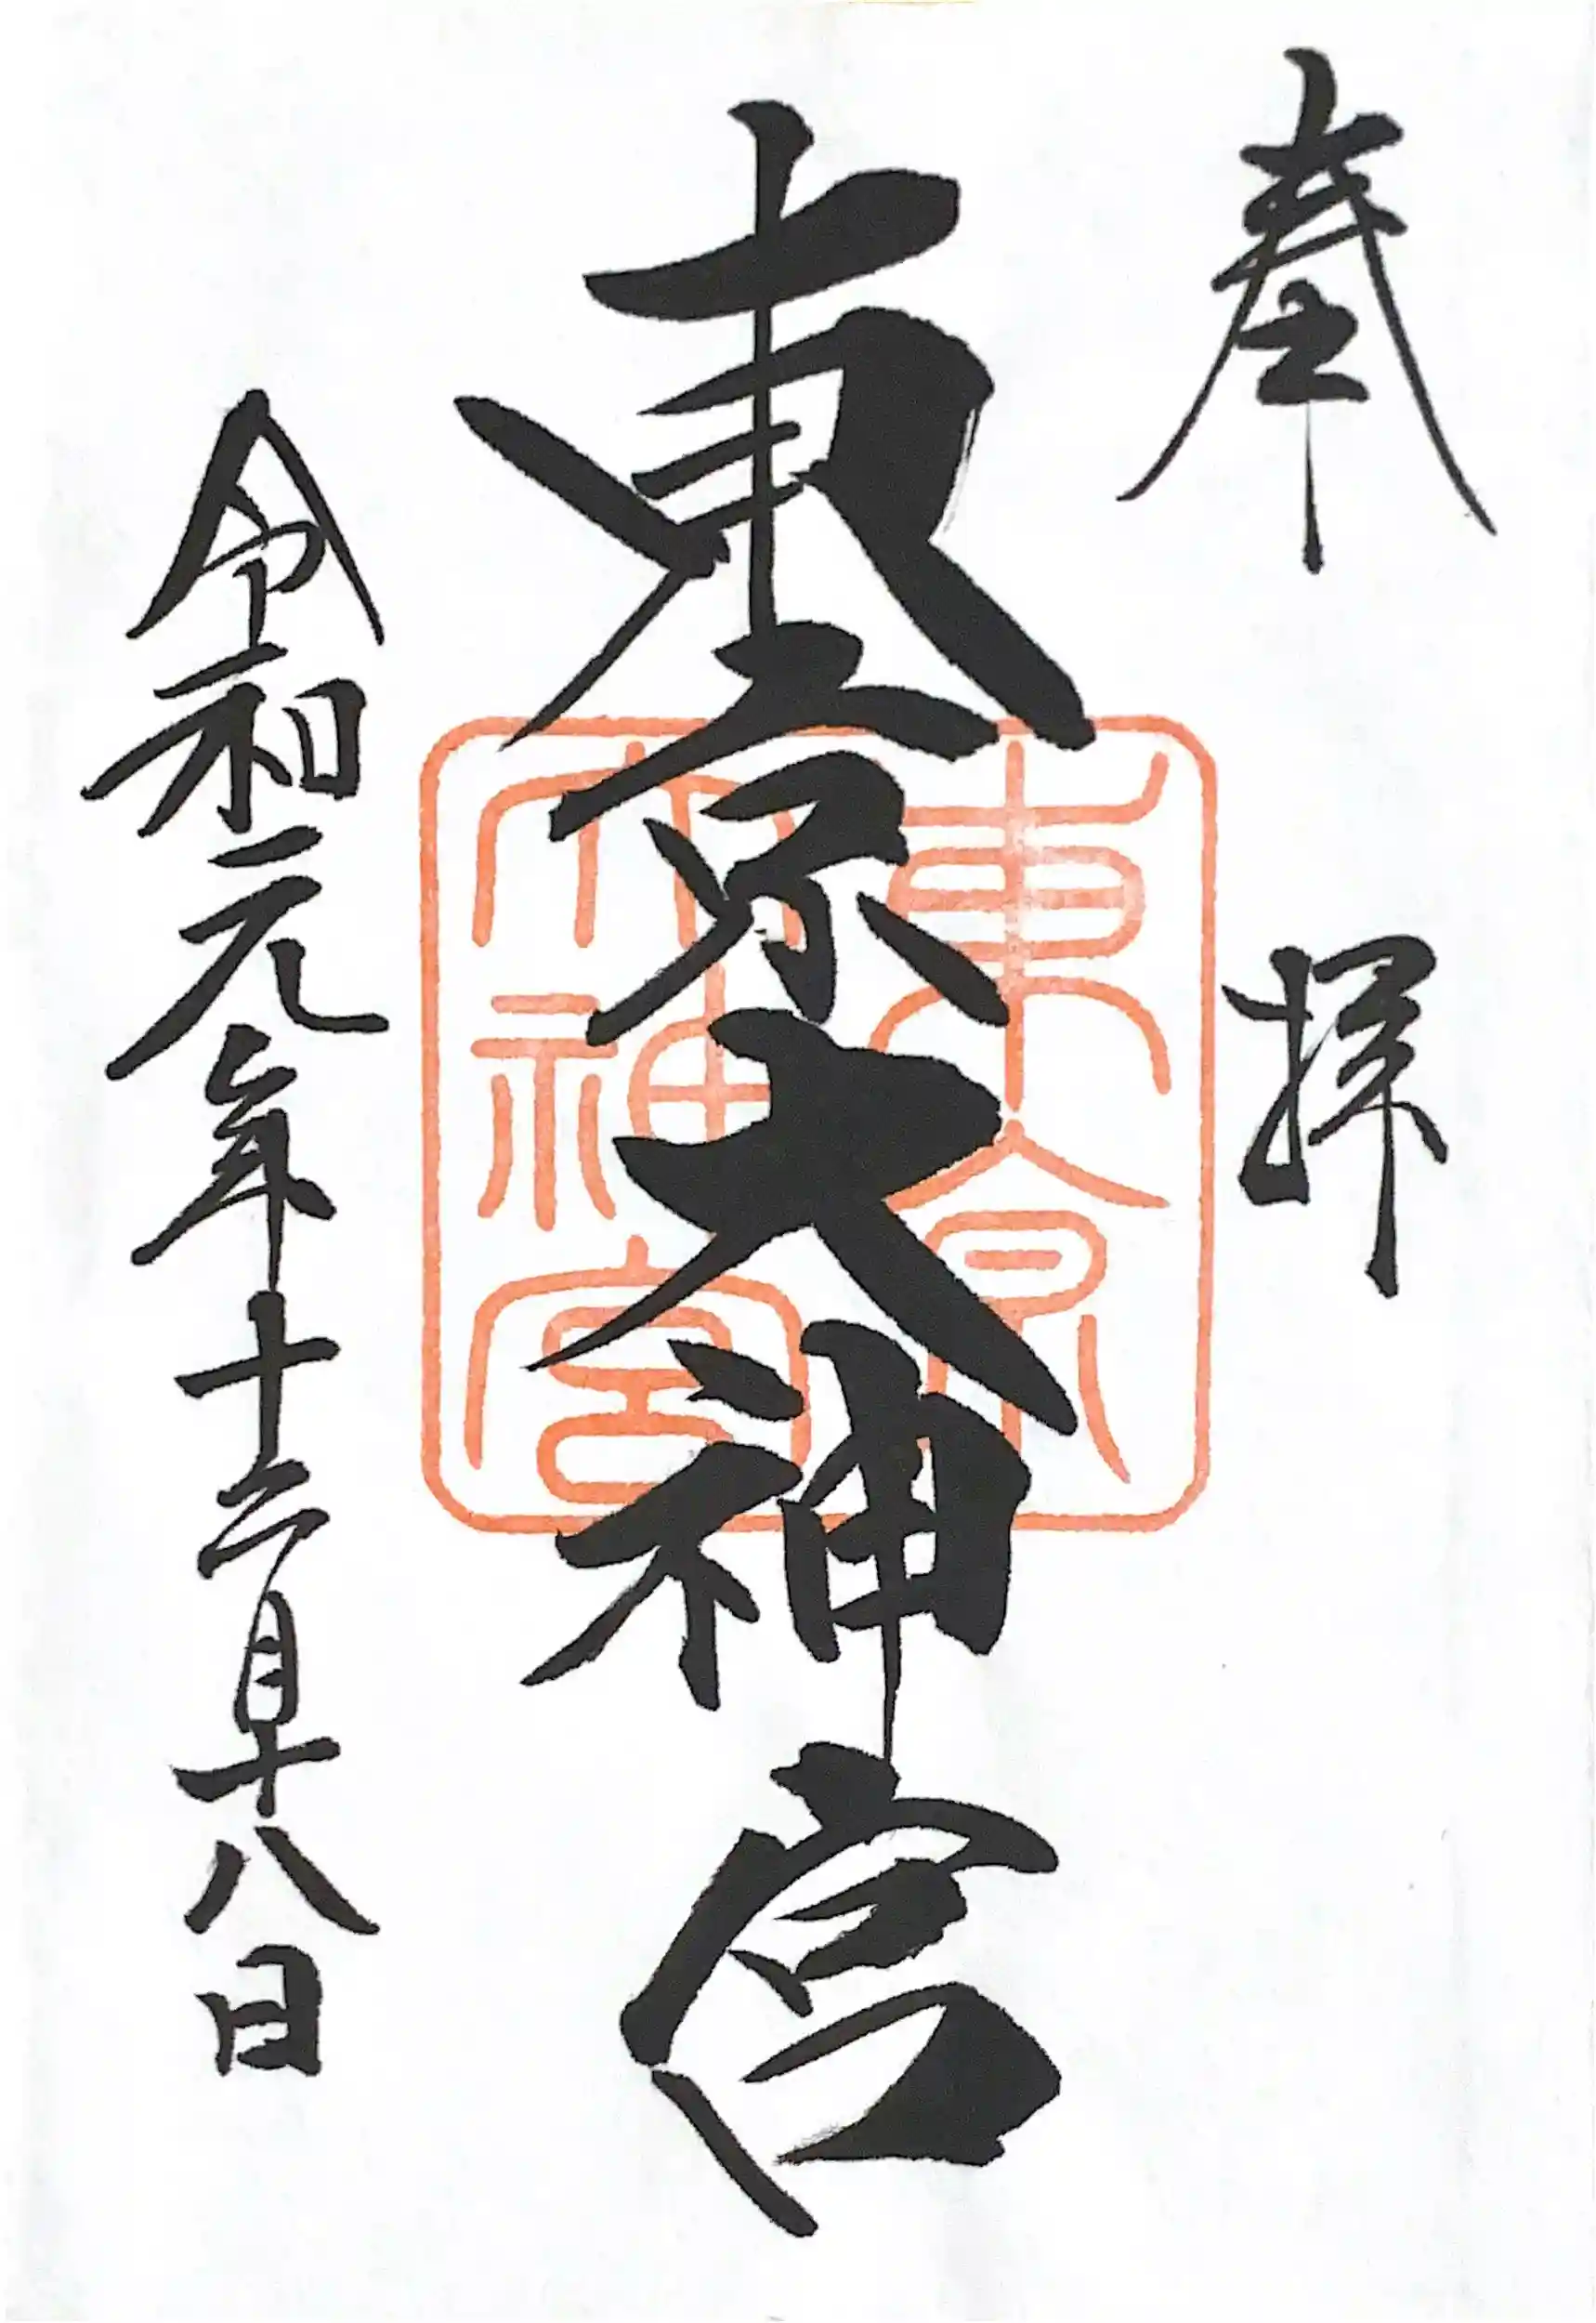 奉拝
東京大神宮
東京
大神宮
令和元年十二月十八日